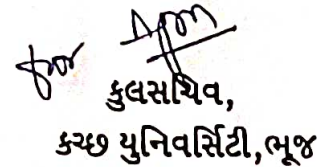 for
કુલસચિવ,
કચ્છ યુનિવર્સિટી, ભૂજ